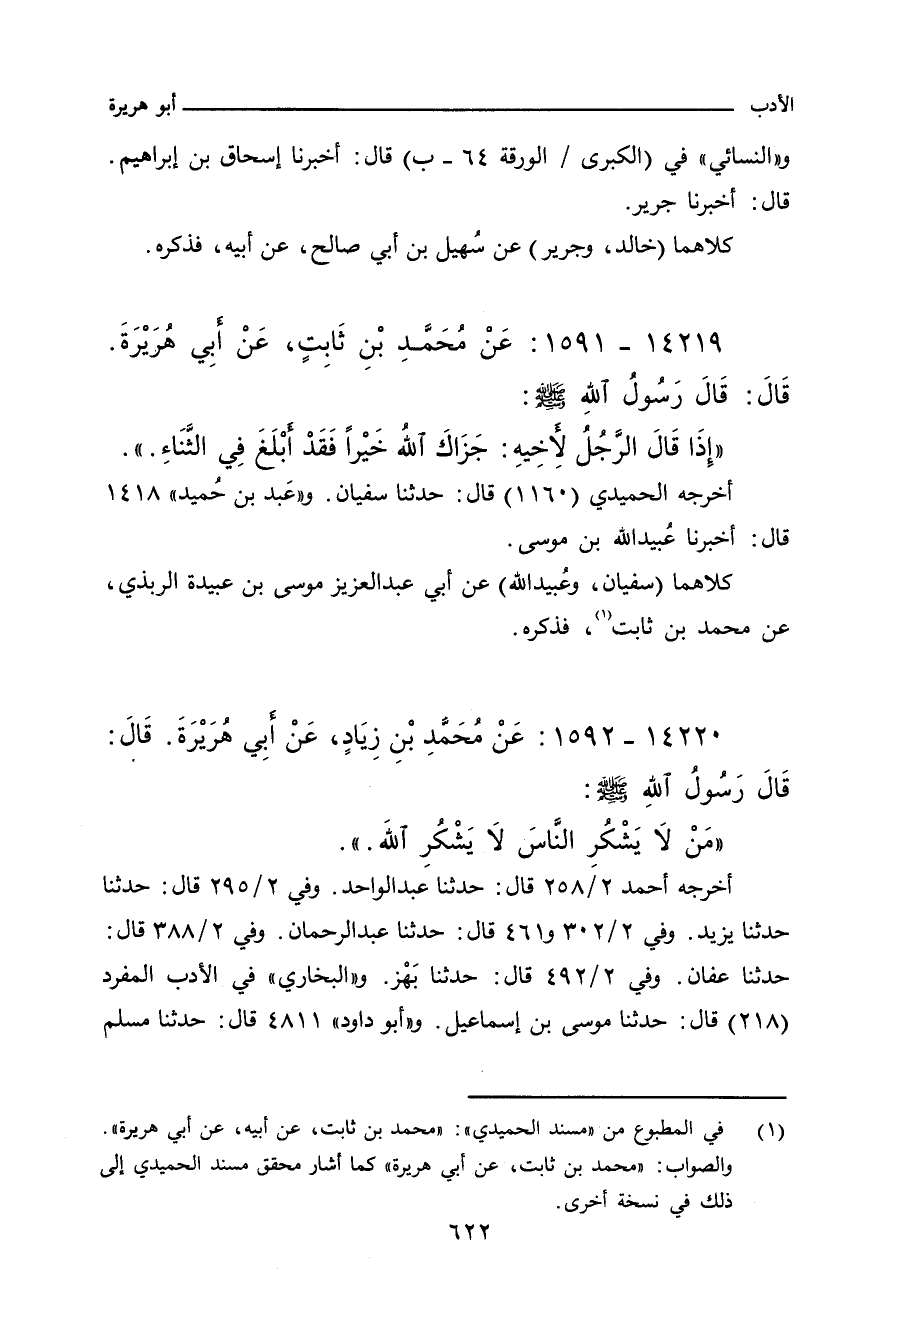 الأدب ـــــــــــــ أبو هريرة
و«النسائي» في (الكبرى / الورقة ٦٤ - ب) قال: أخبرنا إسحاق بن إبراهيم.
قال: أخبرنا جرير.
كلاهما (خالد، وجرير) عن سُهيل بن أبي صالح، عن أبيه، فذكره.
١٤٢١٩ - ١٥٩١: عَنْ مُحَمَّدِ بْنِ ثَابِتٍ، عَنْ أَبِي هُرَيْرَةَ.
قَالَ: قَالَ رَسُولُ ٱللهِ ﷺ:
«إِذَا قَالَ الرَّجُلُ لِأَخِيهِ: جَزَاكَ ٱللهُ خَيْراً فَقَدْ أَبْلَغَ فِي الثَّنَاءِ.».
أخرجه الحميدي (١١٦٠) قال: حدثنا سفيان. و«عَبد بن حُميد» ١٤١٨
قال: أخبرنا عُبيدالله بن موسى.
كلاهما (سفيان، وعُبيدالله) عن أبي عبدالعزيز موسى بن عبيدة الربذي،
عن محمد بن ثابت(١)، فذكره.
١٤٢٢٠ - ١٥٩٢: عَنْ مُحَمَّدِ بْنِ زِيَادٍ، عَنْ أَبِي هُرَيْرَةَ. قَالَ:
قَالَ رَسُولُ ٱللهِ ﷺ:
«مَنْ لَا يَشْكُرِ النَّاسَ لَا يَشْكُرِ ٱللهَ.».
أخرجه أحمد ٢٥٨/٢ قال: حدثنا عبدالواحد. وفي ٢٩٥/٢ قال: حدثنا
حدثنا يزيد. وفي ٣٠٢/٢ و٤٦١ قال: حدثنا عبدالرحمان. وفي ٣٨٨/٢ قال:
حدثنا عفان. وفي ٤٩٢/٢ قال: حدثنا بَهْز. و«البخاري» في الأدب المفرد
(٢١٨) قال: حدثنا موسى بن إسماعيل. و«أبو داود» ٤٨١١ قال: حدثنا مسلم
(١) في المطبوع من «مسند الحميدي»: «محمد بن ثابت، عن أبيه، عن أبي هريرة».
والصواب: «محمد بن ثابت، عن أبي هريرة» كما أشار محقق مسند الحميدي إلى
ذلك في نسخة أخرى.
٦٢٢